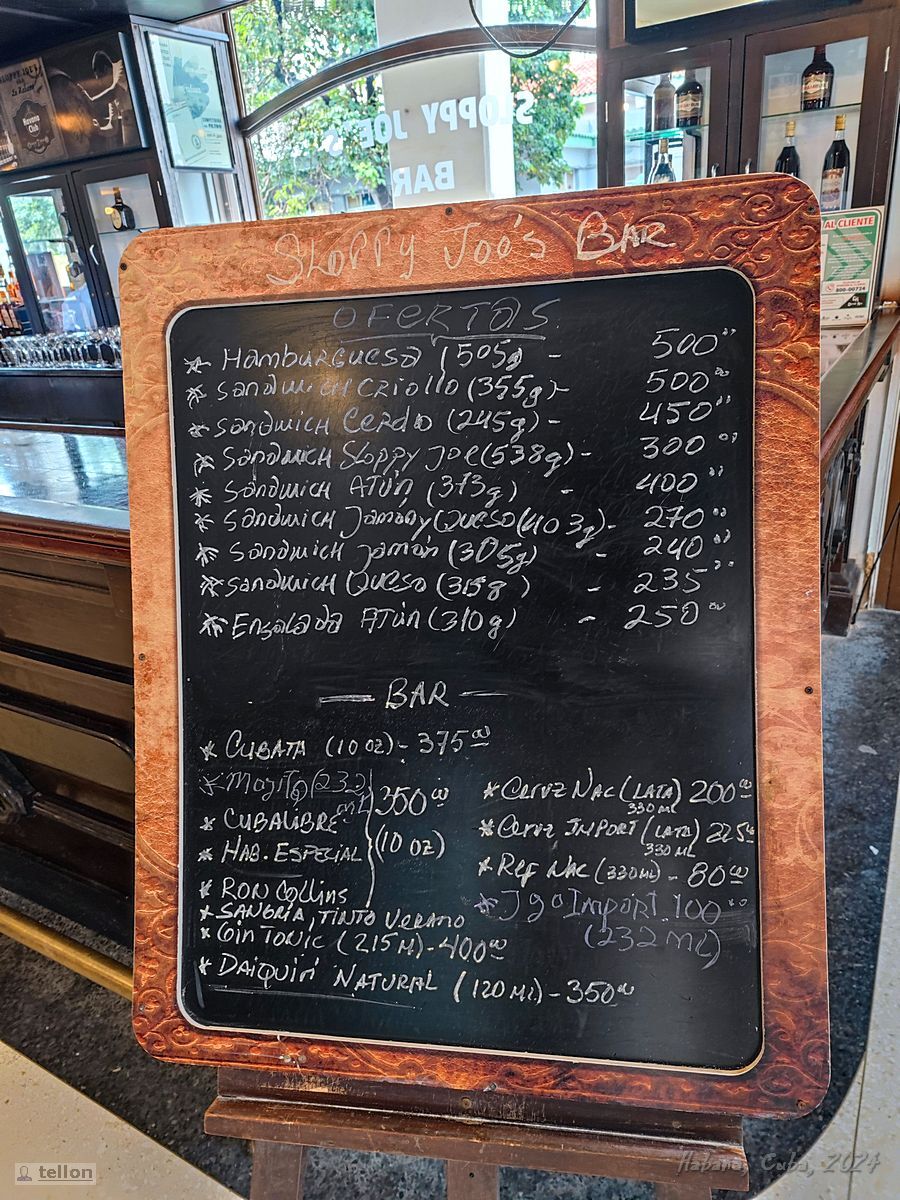 SLOPPY JOE'S
BAR
Havana
Club
AL CLIENTE
SLOPPY JOE'S BAR
OFERTAS
* HAMBURGUESA (505g) - 500°°
* SANDWICH CRIOLLO (355g) - 500°°
* SANDWICH CERDO (245g) - 450°°
* SANDWICH SLOPPY JOE (538g) - 300°°
* SANDWICH ATÚN (373g) - 400°°
* SANDWICH JAMÓN y QUESO (403g) - 270°°
* SANDWICH JAMÓN (305g) - 240°°
* SANDWICH QUESO (315g) - 235°°
* ENSALADA ATÚN (310g) - 250°°
— BAR —
* CUBATA (10 oz) - 375°°
* MOJITO (232 ml) 350°°
* CUBALIBRE
* HAB. ESPECIAL (10 oz)
* RON COLLINS
* SANGRÍA, TINTO VERANO
* GIN TONIC (215 Ml) - 400°°
* DAIQUIRÍ NATURAL (120 Ml) - 350°°
* CERVZ NAC (LATA) 200°°
330 ML
* CERVZ IMPORT (LATA) 225°°
330 ML
* REF NAC (330ML) - 80°°
* JgoIMPORT. 100°°
(232 ml)
tellon
Habana, Cuba, 2024